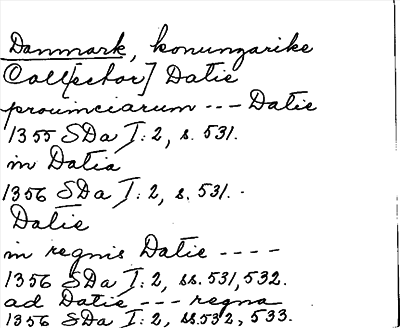 Danmark, konungarike
Coll[ector] Datie
prouinciarum --- Datie
1355 SDa I: 2, s. 531.
in Datia
1356 SDa I: 2, s. 531.
Datie
in regnis Datie ----
1356 SDa I: 2, ss. 531, 532.
ad Datie --- regna
1356 SDa I: 2, ss. 532, 533.